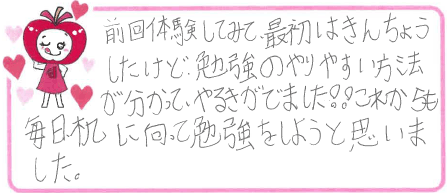 前回体験してみて、最初はきんちょう
したけど、勉強のやりやすい方法
が分かって、やるきがでました!!これからも
毎日、机に向って勉強をしようと思いま
した。